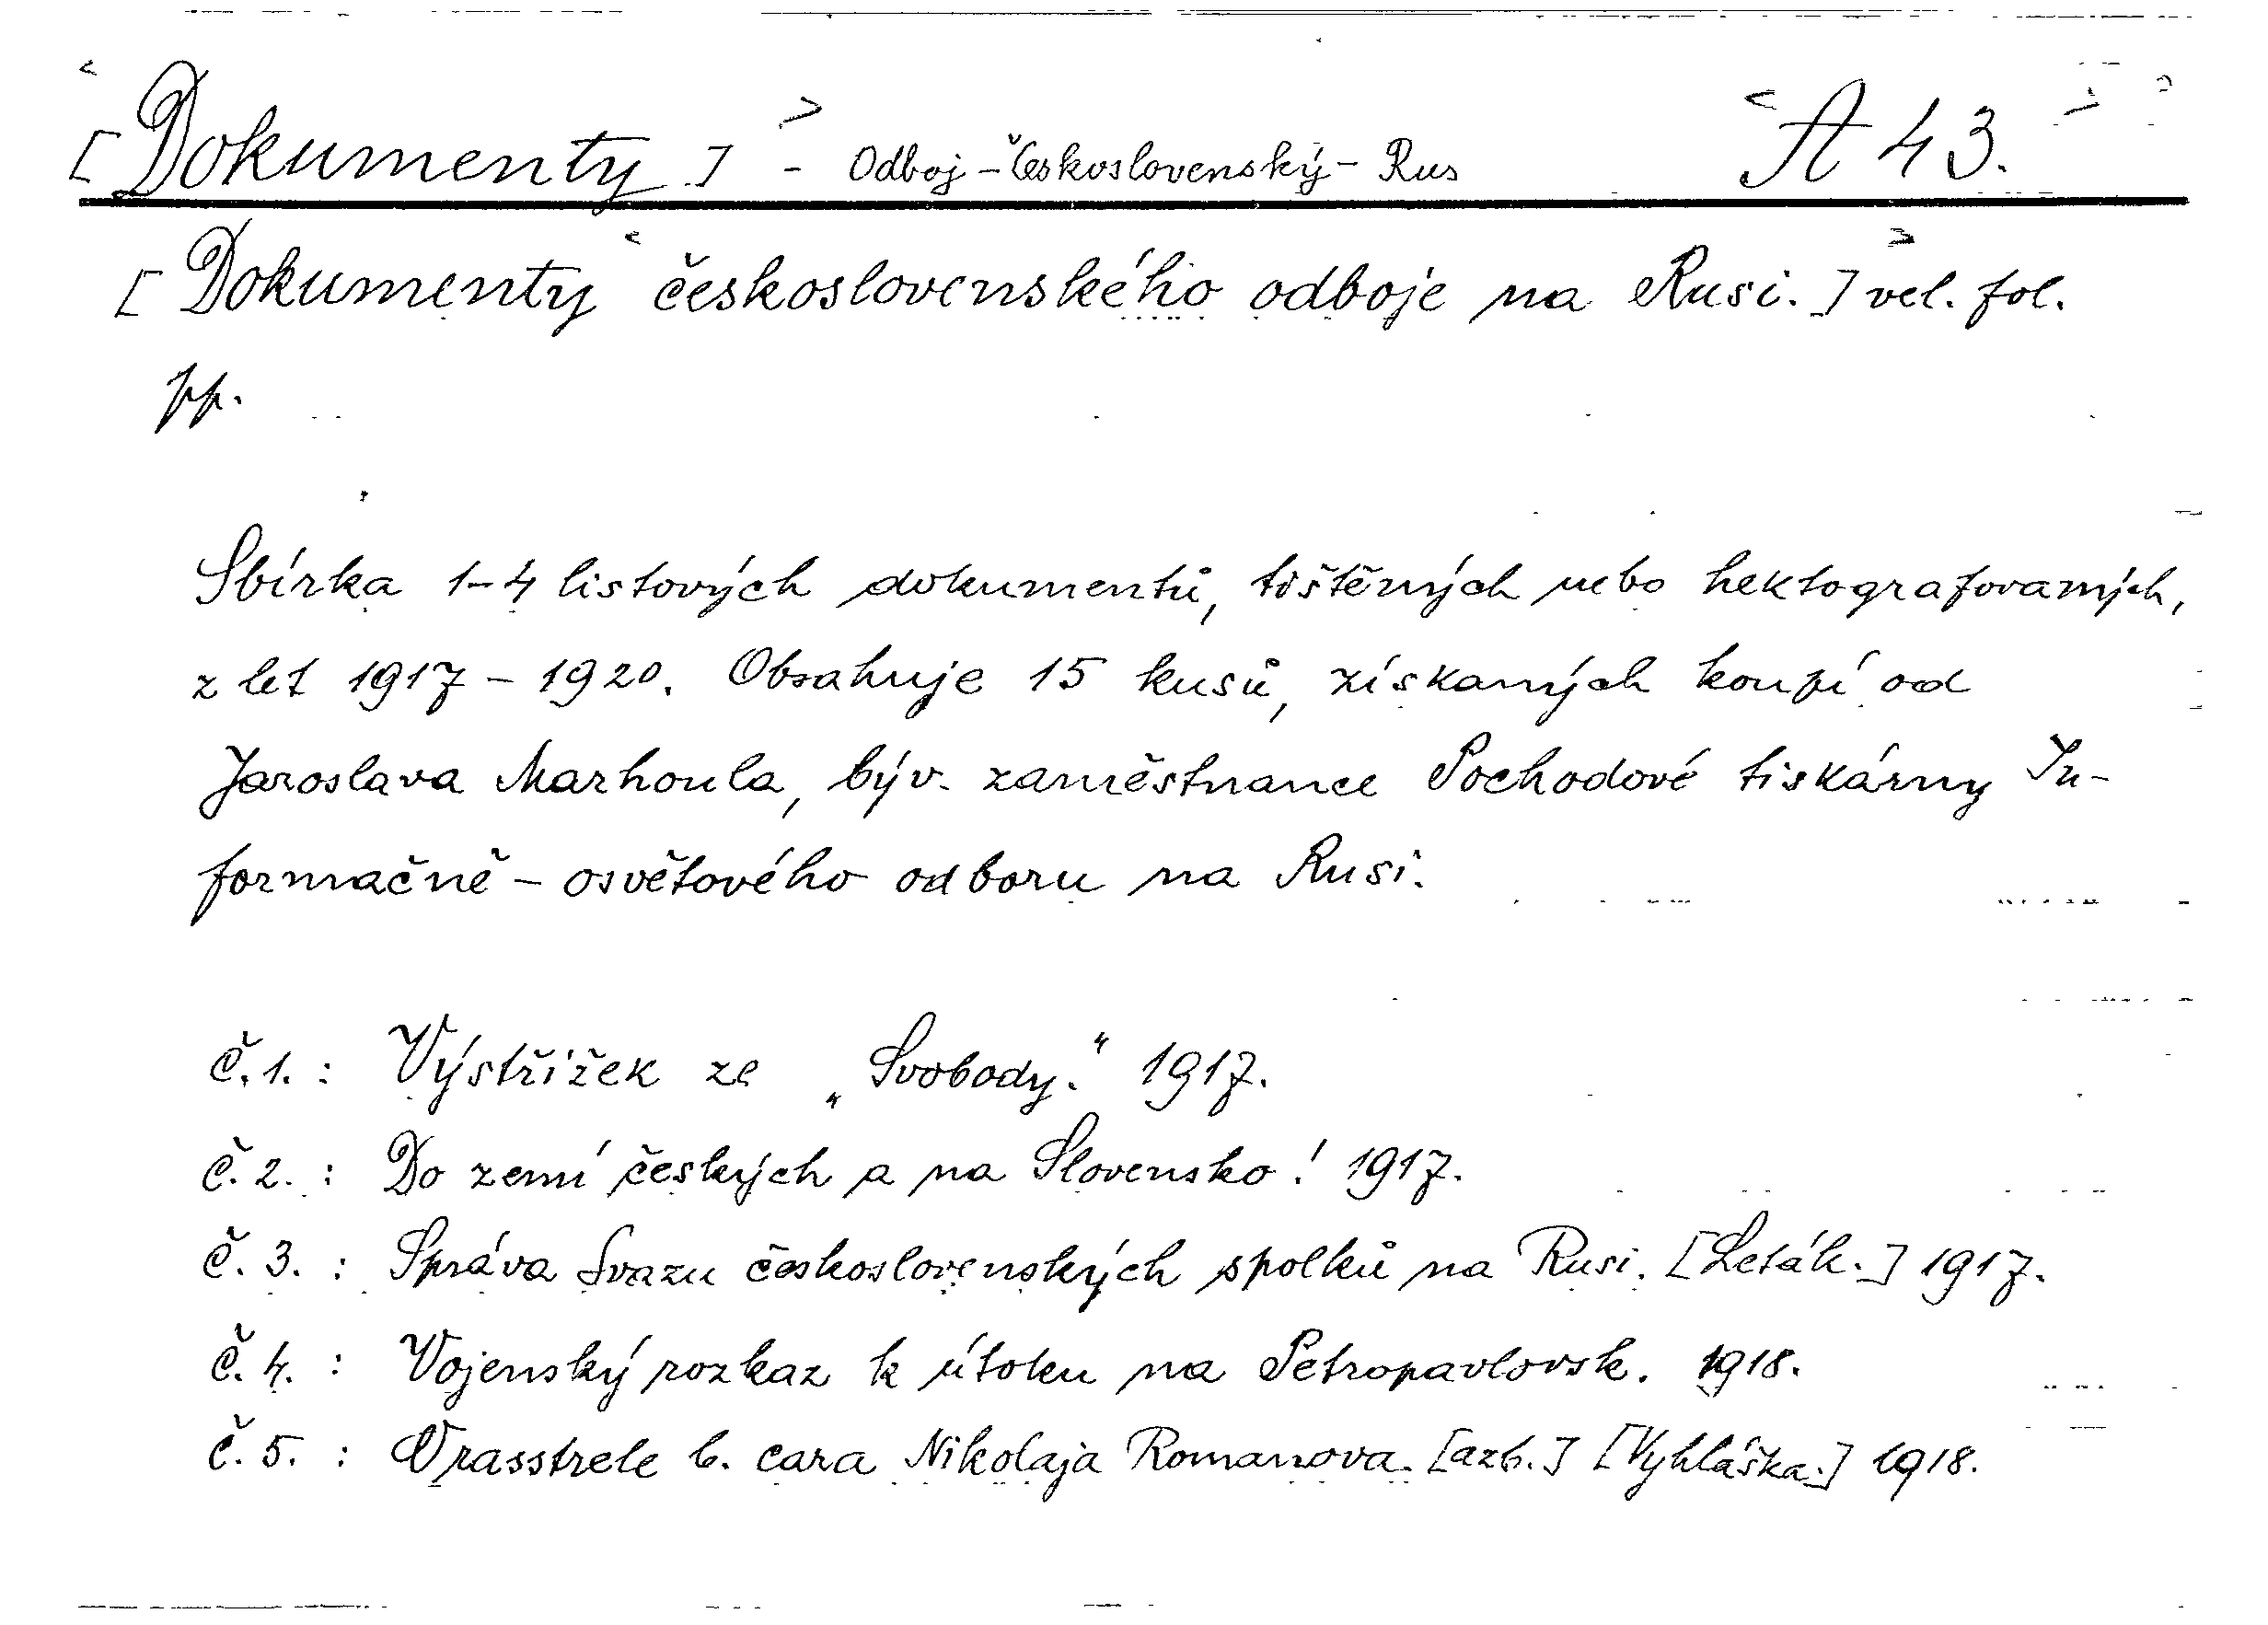 [Dokumenty] - Odboj - Československý - Rus A 43.
[Dokumenty československého odboje na Rusi.] vel. fol.
pp.
Sbírka 1-4 listových dokumentů, tištěných nebo hektografovaných,
z let 1917 - 1920. Obsahuje 15 kusů, získaných koupí od
Jaroslava Marhoula, býv. zaměstnance Pochodové tiskárny In-
formačně - osvětového odboru na Rusi.
č. 1. : Výstřižek ze „Svobody." 1917.
č. 2. : Do zemí českých a na Slovensko! 1917.
č. 3. : Správa Svazu československých spolků na Rusi. [Leták.] 1917.
č. 4. : Vojenský rozkaz k útoku na Petropavlovsk. 1918.
č. 5. : O rasstrele b. cara Nikolaja Romanova. [azb.] [Vyhláška.] 1918.